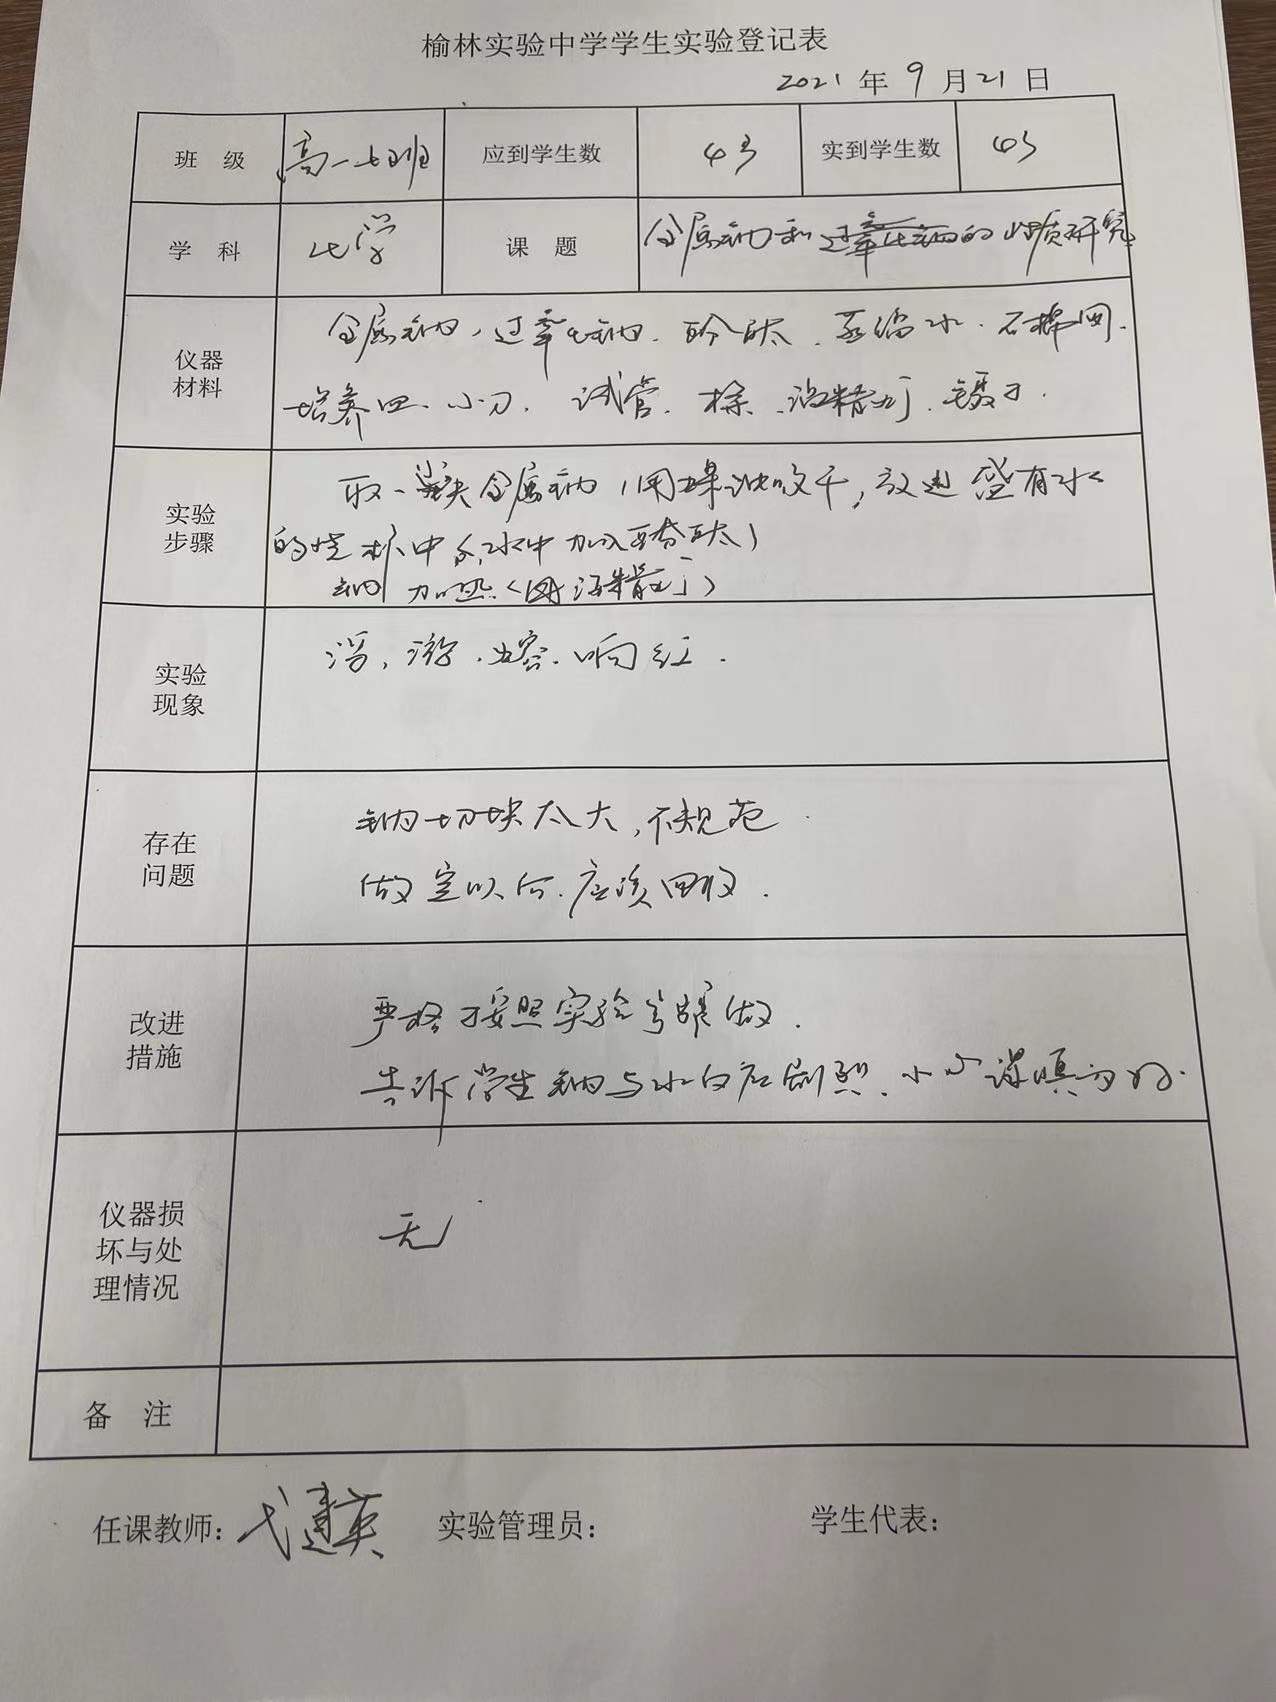 榆林实验中学学生实验登记表
2021年9月21日
班 级 高一七班 应到学生数 43 实到学生数 43
学 科 化学 课 题 金属钠和过氧化钠的性质研究
仪器材料
金属钠、过氧化钠、酚酞、蒸馏水、石棉网、
培养皿、小刀、试管、酒精灯、镊子.
实验步骤
取一块金属钠(用煤油吸干,放进盛有水
的烧杯中(水中加入酚酞)
钠加热(用酒精灯)
实验现象
浮,游、熔、响红.
存在问题
钠切块太大,不规范.
做完以后、应该回收.
改进措施
严格按照实验步骤做.
告诉学生钠与水反应剧烈、小心谨慎为好.
仪器损坏与处理情况
无
备 注
任课教师: 弋建英 实验管理员: 学生代表: